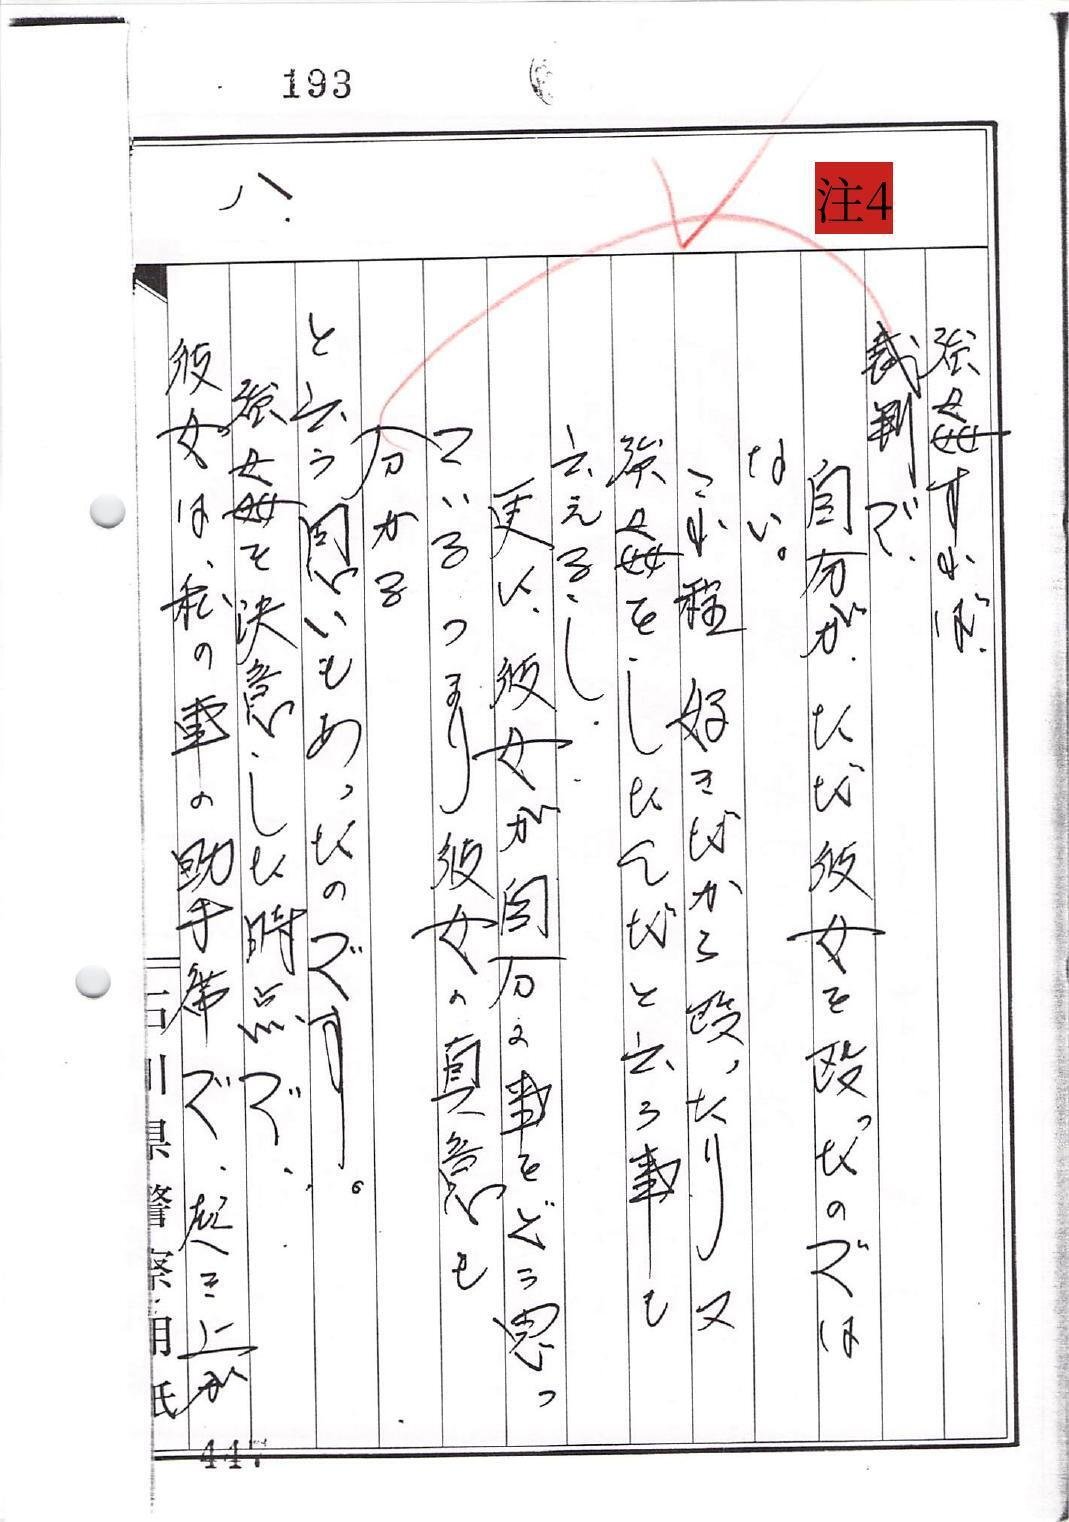 193
注4
強姦すれば、
裁判で、
自分が、ただ彼女を殴ったのでは
ない。
これ程好きだから殴ったり又
強姦をしたんだと云う事も
云えるし、
更に、彼女が自分の事をどう思っ
ているつまり彼女の真意も
分かる
と云う思いもあったのです。
八、
強姦を決意した時点で、
彼女は、私の車の助手席で、起き上が
石川県警察用紙
447